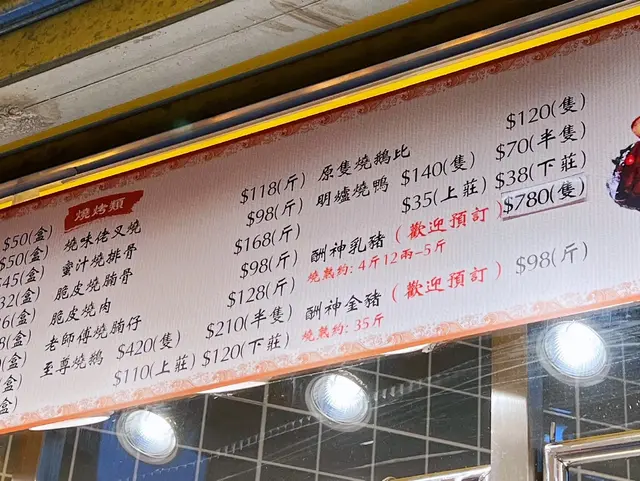 $50(盒)
$50(盒)
$45(盒)
燒烤類
燒味佬叉燒 $118(斤)
蜜汁燒排骨 $98(斤)
脆皮燒腩骨 $168(斤)
脆皮燒肉 $98(斤)
老師傅燒腩仔 $128(斤)
至尊燒鵝 $420(隻) $210(半隻)
$110(上莊) $120(下莊)
原隻燒鵝比 $120(隻)
明爐燒鴨 $140(隻) $70(半隻)
$35(上莊) $38(下莊)
酬神乳豬(歡迎預訂) $780(隻)
燒熟約: 4斤12兩-5斤
酬神金豬(歡迎預訂) $98(斤)
燒熟約: 35斤